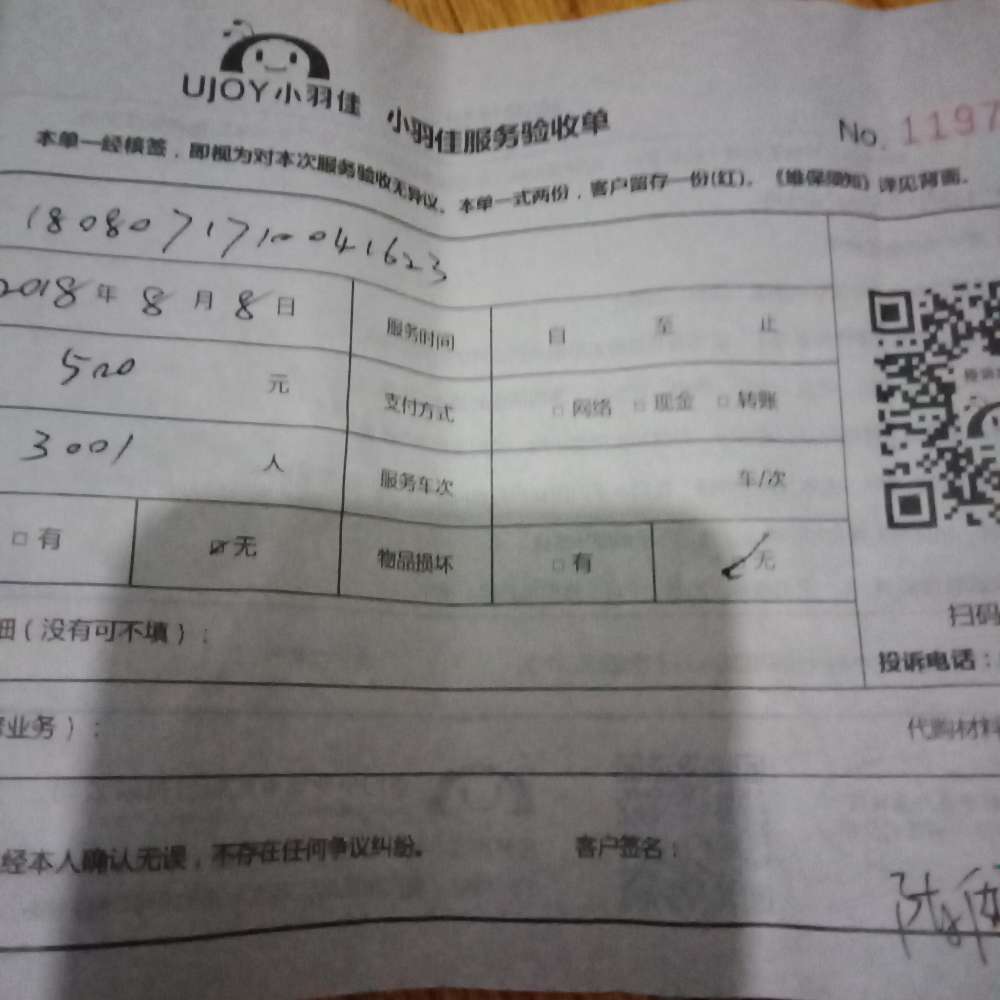 UJOY小羽佳 小羽佳服务验收单 No. 1197
本单一经核签，即视为对本次服务验收无异议。本单一式两份，客户留存一份(红)。《维保须知》详见背面。
1808071710041623
2018年8月8日 服务时间 自 至 止
500 元 支付方式 □网络 □现金 □转账
3001 人 服务车次 车/次
□有 ☑无 物品损坏 □有 ✓无
扫码
细（没有可不填）：
投诉电话：
业务）： 代购材料
经本人确认无误，不存在任何争议纠纷。 客户签名：